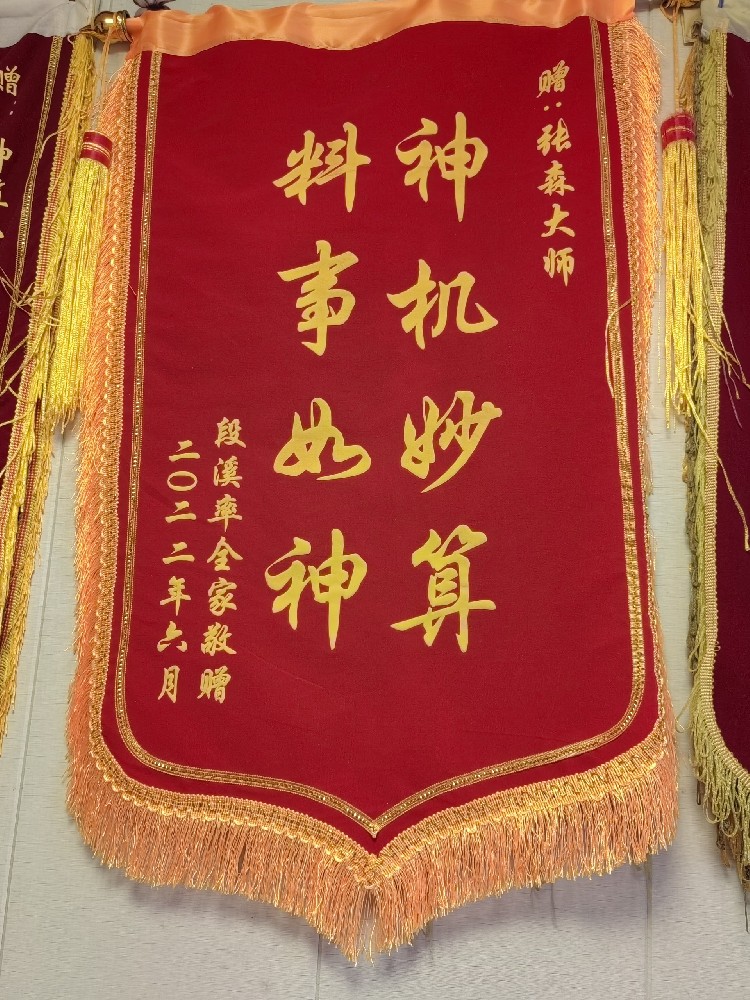 赠：张森大师
神机妙算
料事如神
段溪率全家敬赠
二〇二二年六月
赠：神